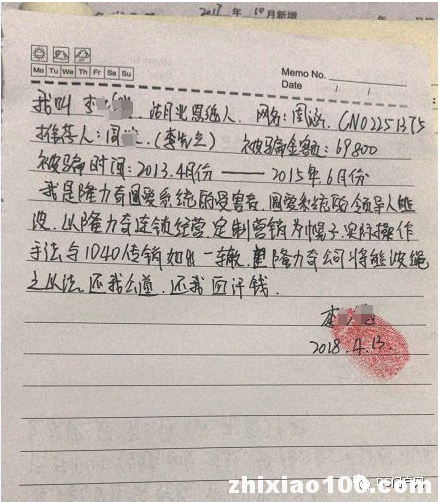 2017年10月新增
Memo No.
Mo Tu We Th Fr Sa Su
Date / /
我叫李 湖北恩施人. 网名:周涵. CN02251375
推荐人:周 (李先兰) 被骗金额:69800
被骗时间:2013.4月份 —— 2015年6月份
我是隆力奇国爱系统的受害者,国爱系统的领导人熊
波.以隆力奇连锁经营定制营销为帽子,实际操作
手法与1040传销如出一辙. 隆力奇公司将熊波绳
之以法.还我公道.还我血汗钱.
李
2018.4.13
zhixiao100.com